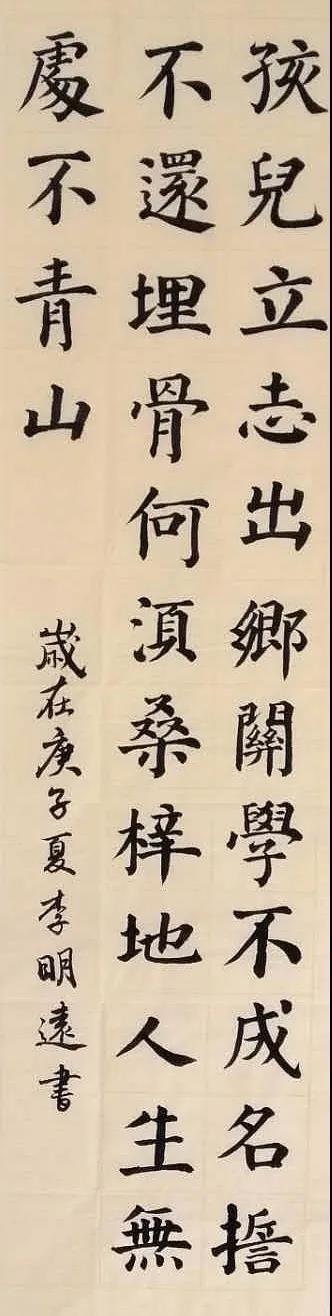 孩兒立志出鄉關學不成名誓
不還埋骨何須桑梓地人生無
處不青山
歲在庚子夏李明遠書